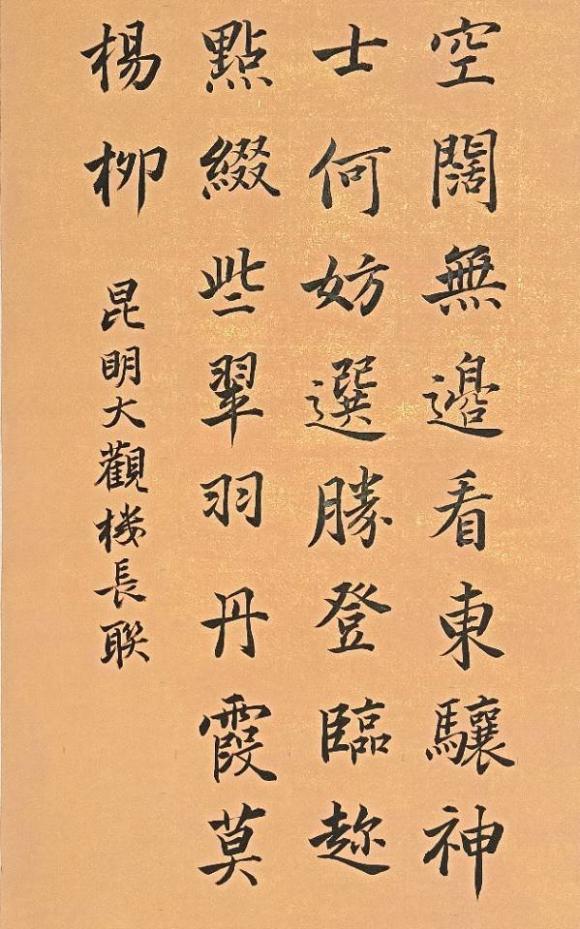 空闊無邊看東驤神
士何妨選勝登臨趂
點綴些翠羽丹霞莫
楊柳
昆明大觀楼長聯